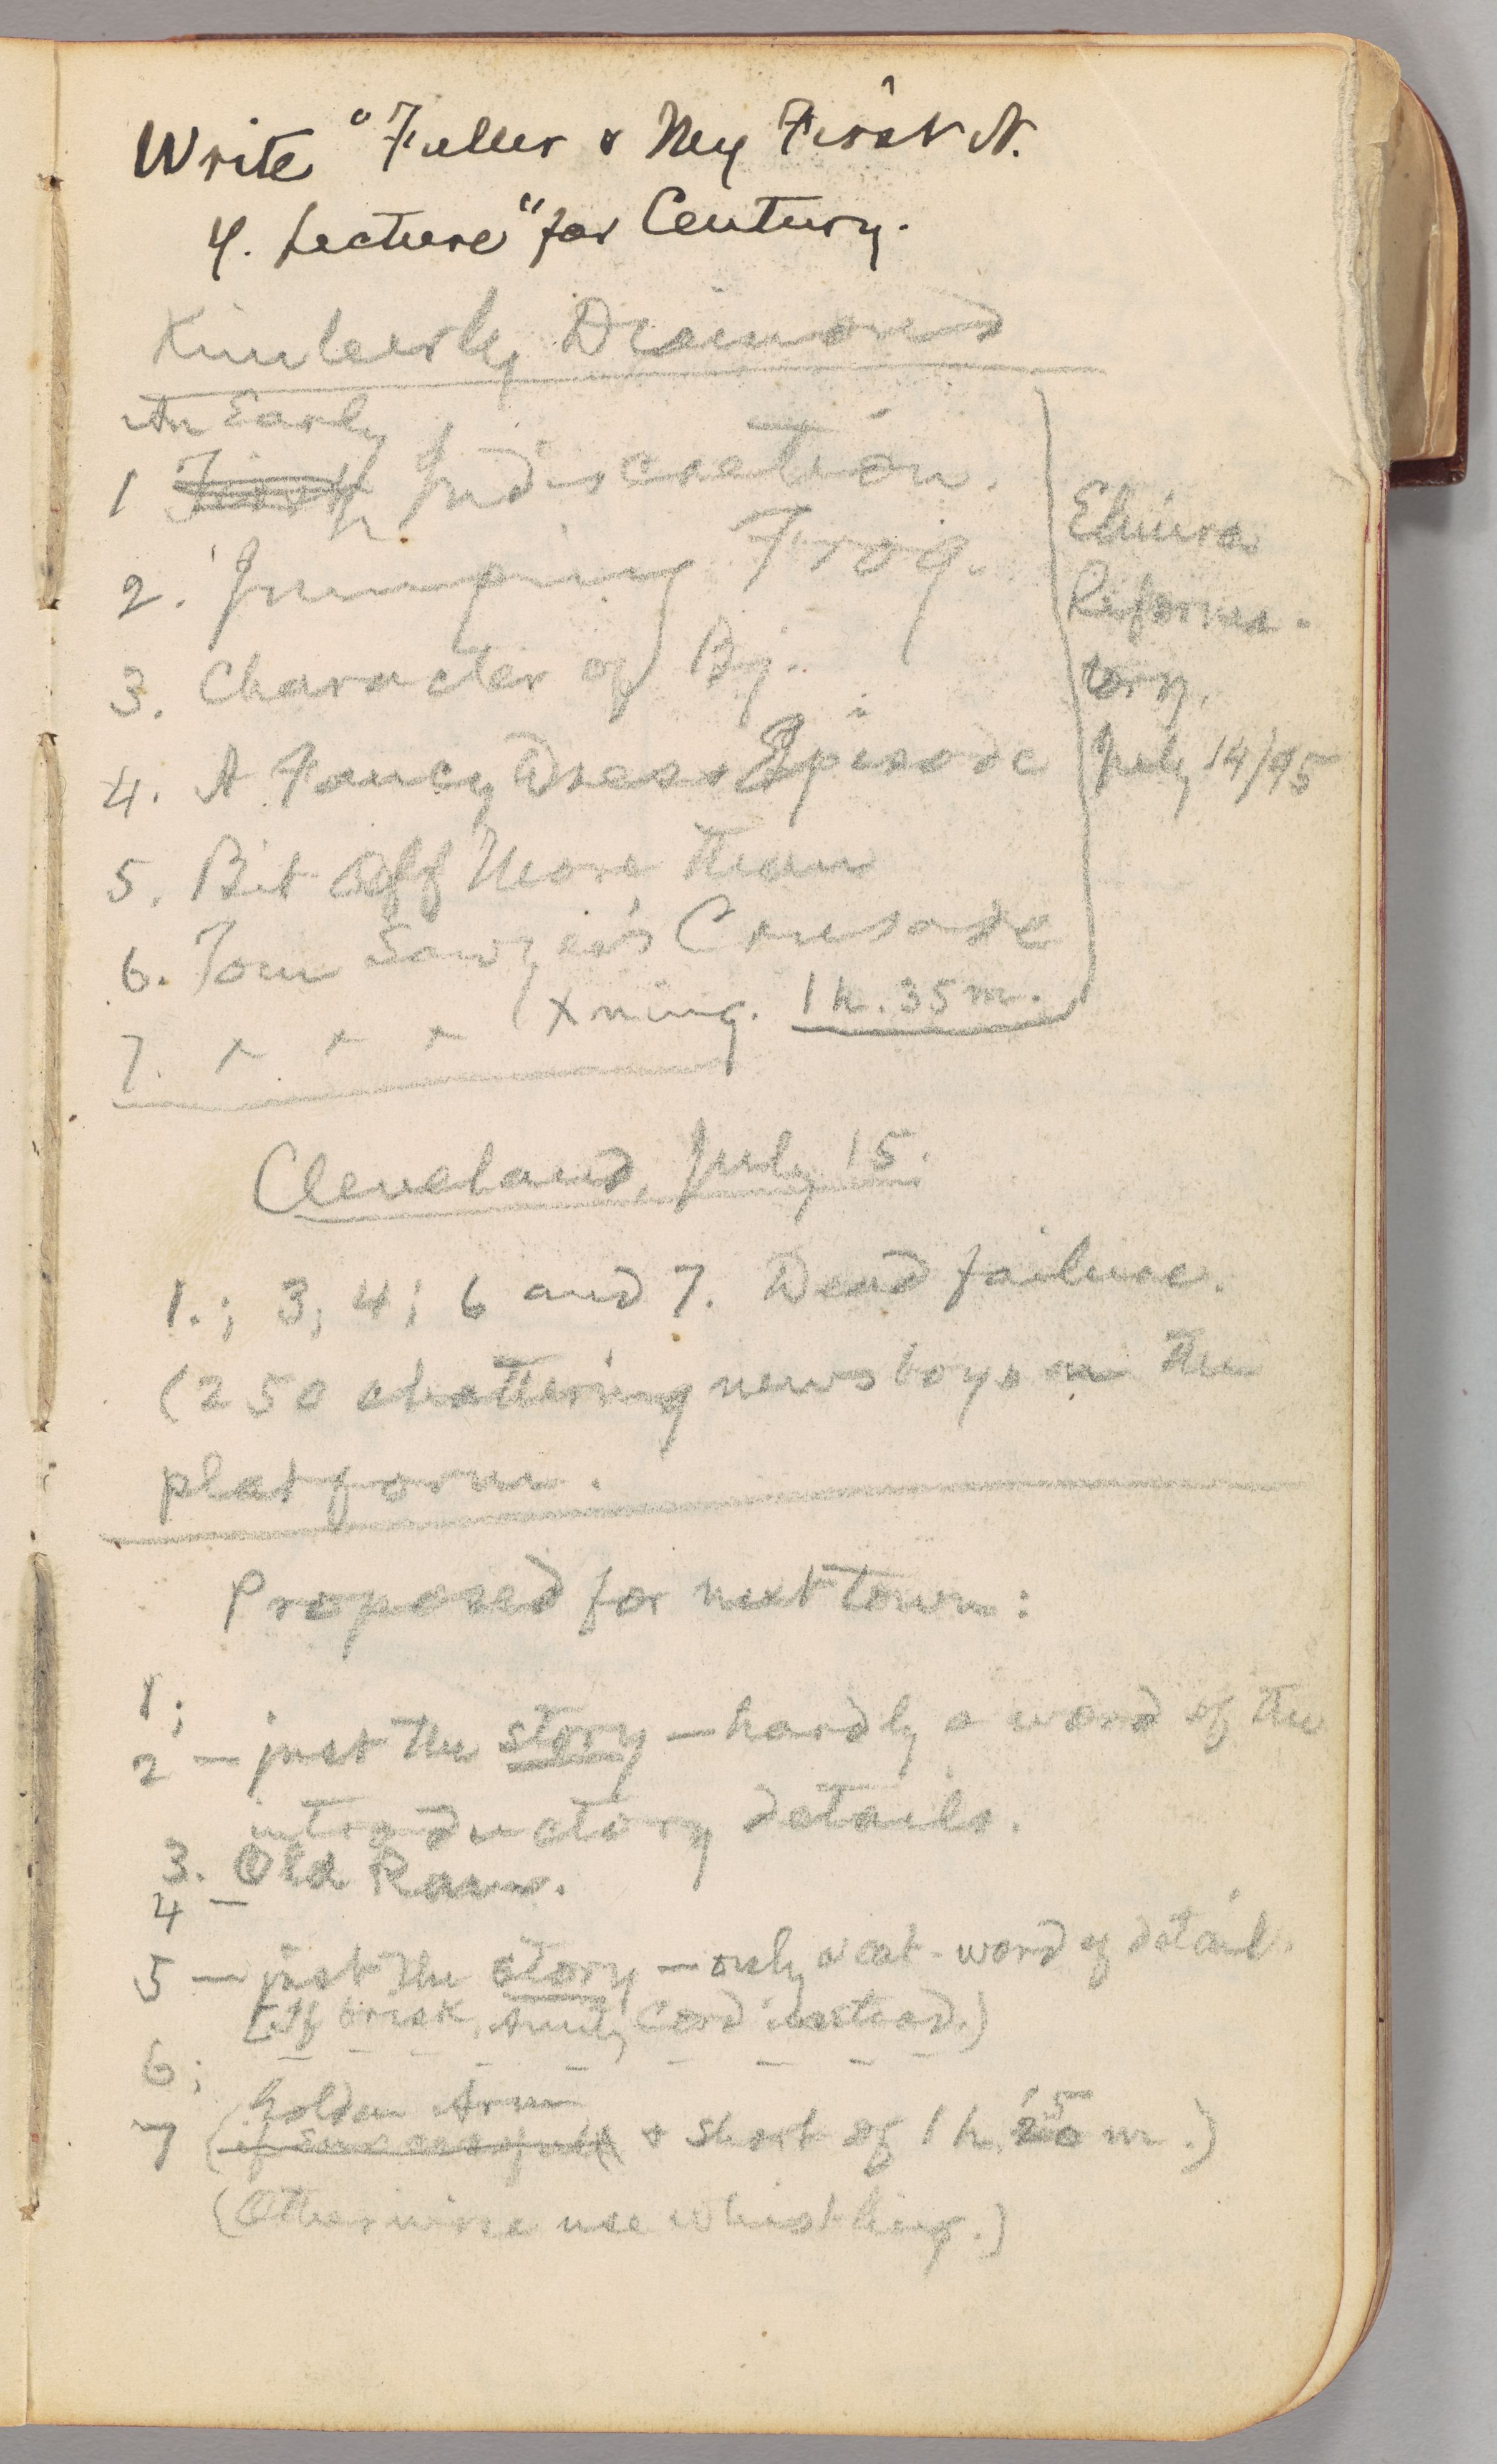 Write "Fuller & My First N.
Y. Lecture" for Century.
Kimberly Diamond
An Early
1 First Indiscretion.
2. Jumping Frog.
3. Character of Bj.
4. A Fancy Dress Episode
5. Bit Off More than
6. Tom Sawyer's Crusade
7. x x x Xning. 1 h. 35 m.
Elmira
Reforma-
tory,
July 14/95
Cleveland, July 15.
1.; 3; 4; 6 and 7. Dead failure.
(250 chattering newsboys on the
platform.
Proposed for next town:
1;
2 — just the story — hardly a word of the
introductory details.
3. Old Ram.
4 —
5 — just the story — only a cat-word of detail.
[If brisk, Aunty Cord instead.)
6; — — — — — — — — —
Golden Arm
7 (if successful & short of 1 h, 25 m.)
(Otherwise use whistling.)